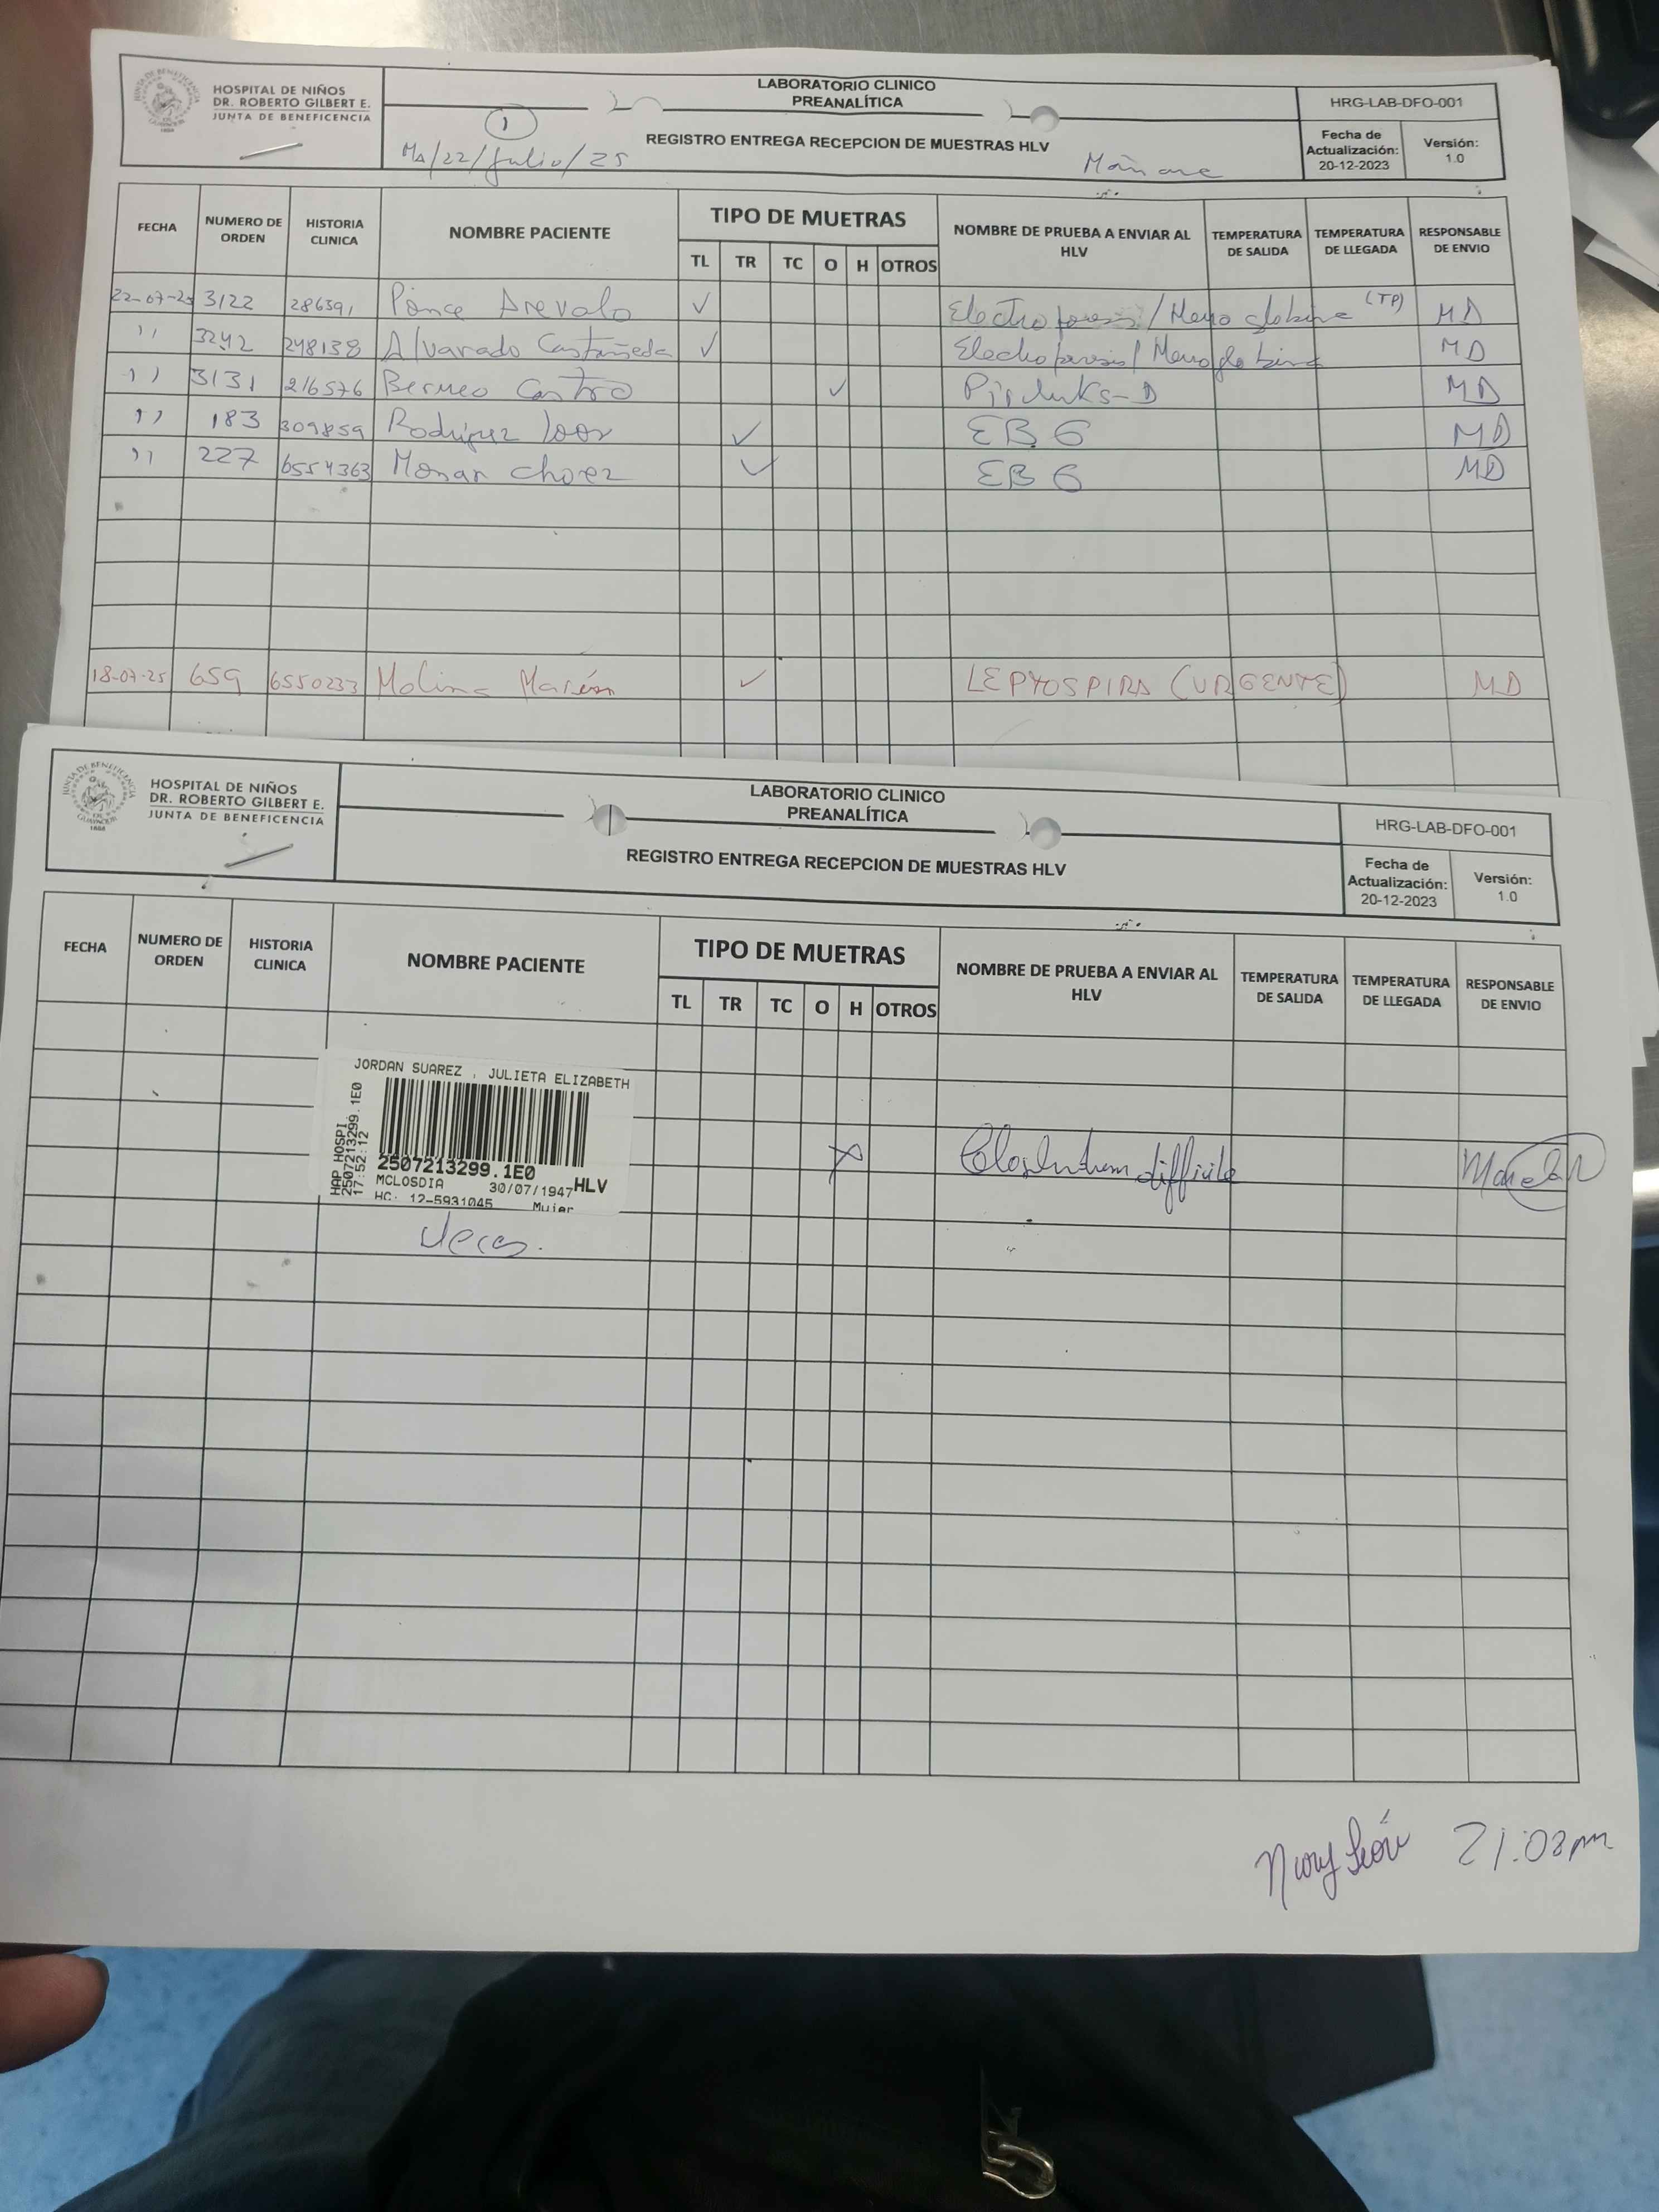 HOSPITAL DE NIÑOS
DR. ROBERTO GILBERT E.
JUNTA DE BENEFICENCIA
LABORATORIO CLINICO
PREANALÍTICA
REGISTRO ENTREGA RECEPCION DE MUESTRAS HLV
1
Ma/22/Julio/25
HRG-LAB-DFO-001
Fecha de Actualización: 20-12-2023
Versión: 1.0
FECHA NUMERO DE ORDEN HISTORIA CLINICA NOMBRE PACIENTE TIPO DE MUETRAS NOMBRE DE PRUEBA A ENVIAR AL HLV TEMPERATURA DE SALIDA TEMPERATURA DE LLEGADA RESPONSABLE DE ENVIO
TL TR TC O H OTROS
22-07-25 3122 286391 Ponce Arevalo ✓ (TP) MD
'' 3242 248138 Alvarado Castañeda ✓ MD
'' 3131 216576 Bermeo Castro ✓ MD
'' 183 309859 Rodriguez Loor ✓ MD
'' 227 6554363 Monar Chavez ✓ MD
18-07-25 659 6550233 Molina ✓ LEPTOSPIRA (URGENTE) MD
HOSPITAL DE NIÑOS
DR. ROBERTO GILBERT E.
JUNTA DE BENEFICENCIA
LABORATORIO CLINICO
PREANALÍTICA
REGISTRO ENTREGA RECEPCION DE MUESTRAS HLV
HRG-LAB-DFO-001
Fecha de Actualización: 20-12-2023
Versión: 1.0
FECHA NUMERO DE ORDEN HISTORIA CLINICA NOMBRE PACIENTE TIPO DE MUETRAS NOMBRE DE PRUEBA A ENVIAR AL HLV TEMPERATURA DE SALIDA TEMPERATURA DE LLEGADA RESPONSABLE DE ENVIO
TL TR TC O H OTROS
JORDAN SUAREZ , JULIETA ELIZABETH
HAP HOSPI.
2507213299.1E0
17:52:12
2507213299.1E0
MCLOSDIA 30/07/1947 HLV
HC: 12-5931045 Mujer
X Clostridium difficile
Heces.
21:08pm